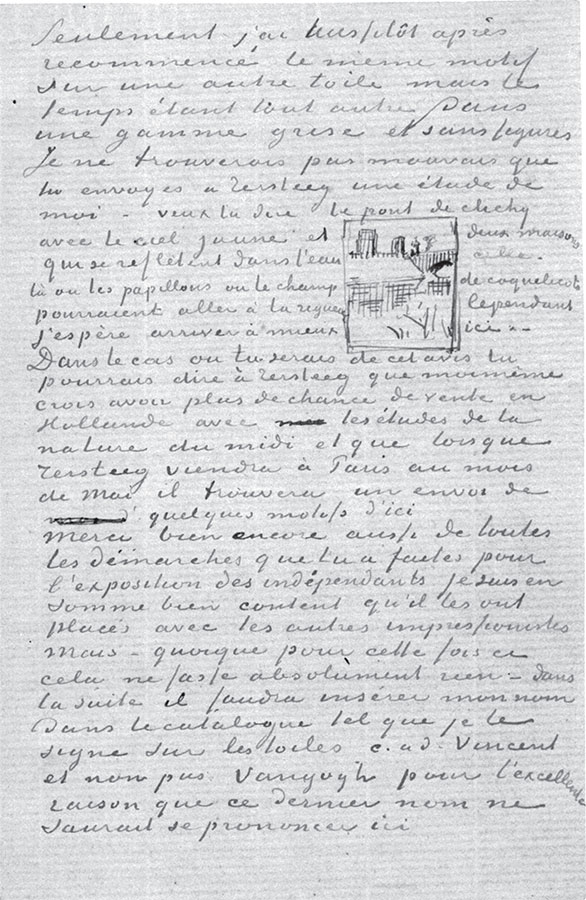 Seulement j'ai aussitôt après
recommencé le meme motif
sur une autre toile mais le
temps étant tout autre Dans
une gamme grise et sans figures
Je ne trouverais pas mauvais que
tu envoyes a Tersteeg une étude de
moi – veux tu dire le pont de clichy
avec le ciel jaune et deux maisons
qui se reflêtent dans l'eau celle-
là ou les papillons ou le champ de coquelicots
pourraient aller à la rigueur cependant
j'espère arriver à mieux ici –
Dans le cas ou tu serais de cet avis tu
pourrais dire à Tersteeg que moi même
crois avoir plus de chance de vente en
Hollande avec les études de la
nature du midi et que lorsque
Tersteeg viendra à Paris au mois
de Mai il trouvera un envoi de
d'quelques motifs d'ici
Merci bien encore aussi de toutes
les démarches que tu a faites pour
l'exposition des indépendants je suis en
somme bien content qu'il les ont
placés avec les autres impressionistes
Mais – quoique pour cette fois ci
cela ne fasse absolument rien – dans
la suite il faudra insérer mon nom
Dans le catalogue tel que je le
signe sur les toiles c. a d. Vincent
et non pas Vangogh pour l'excellente
raison que ce dernier nom ne
saurait se prononcer ici